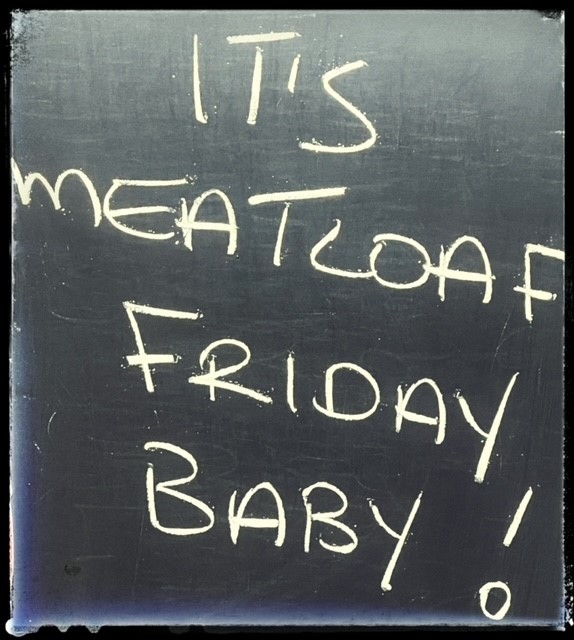 IT'S
MEATLOAF
FRIDAY
BABY!